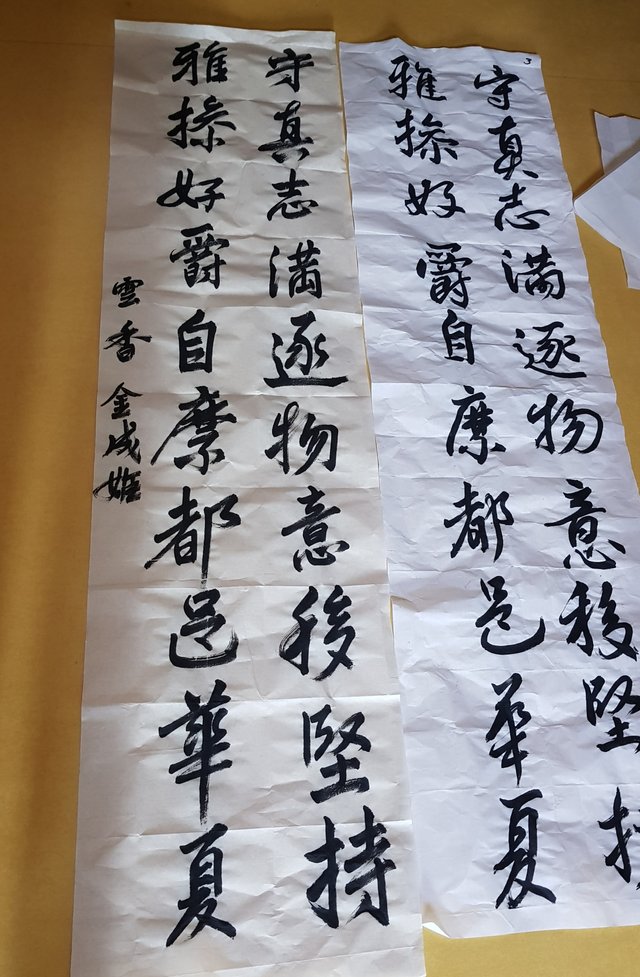 3
守真志満逐物意移堅持
雅操好爵自縻都邑華夏
守真志満逐物意移堅持
雅操好爵自縻都邑華夏
雲香 金成姬